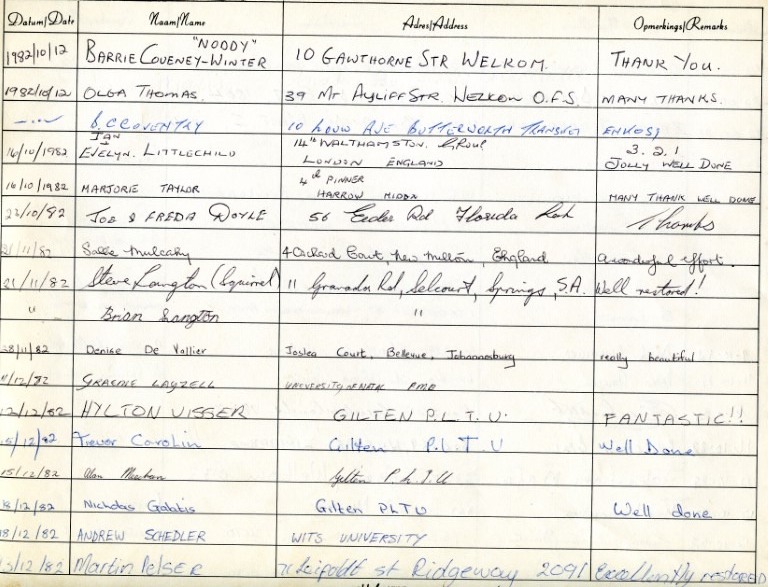 Datum/Date Naam/Name Adres/Address Opmerkings/Remarks
1982/10/12 BARRIE COVENEY-WINTER "NOODY" 10 GAWTHORNE STR WELKOM. THANK YOU.
1982/10/12 OLGA THOMAS. 39 Mt AYLIFF STR. WELKOM O.F.S. MANY THANKS.
B, C COVENTRY 10 LOUW AVE BUTTERWORTH TRANSKEI ENKOSI
16/10/1982 IAN EVELYN. LITTLECHILD 14th WALTHAMSTOW. Group LONDON ENGLAND 3. 2. 1 JOLLY WELL DONE
16/10/1982 MARJORIE TAYLOR 4th PINNER HARROW MIDDX MANY THANK WELL DONE
JOE & FREDA DOYLE 56 Rd Florida Thanks
21/11/82 Mulcahy 4 Orchard Court, New Milton, England A wonderful effort.
21/11/82 Steve Langton (Squirrel) 11 Granada Rd, Selcourt, Springs, S.A. Well restored!
" Brian Langton "
28/11/82 Denise De Vallier Joslea Court, Bellevue, Johannesburg really beautiful
/12/82 GRAEME LAYZELL UNIVERSITY OF NATAL PMB
12/12/82 HYLTON VISSER GILTEN P.L.T.U. FANTASTIC!!
15/12/82 Trevor Carolin Gilten P.L.T.U Well Done
15/12/82 Alan Gilten P.L.T.U
18/12/82 Nicholas Galatis Gilten PLTU Well done
18/12/82 ANDREW SCHEDLER WITS UNIVERSITY
/12/82 Martin Pelser Leipoldt st Ridgeway 2091 Excellently restored